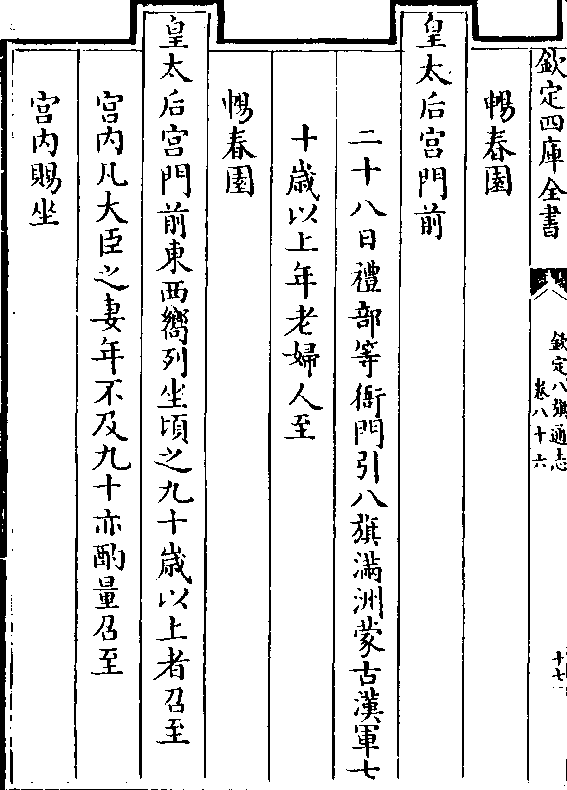 欽定四庫全書
欽定八旗通志
卷八十六
十七
暢春園
皇太后宮門前
二十八日禮部等衙門引八旗滿洲蒙古漢軍七
十歲以上年老婦人至
暢春園
皇太后宮門前東西嚮列坐頃之九十歲以上者召至
宮內凡大臣之妻年不及九十亦酌量召至
宮內賜坐